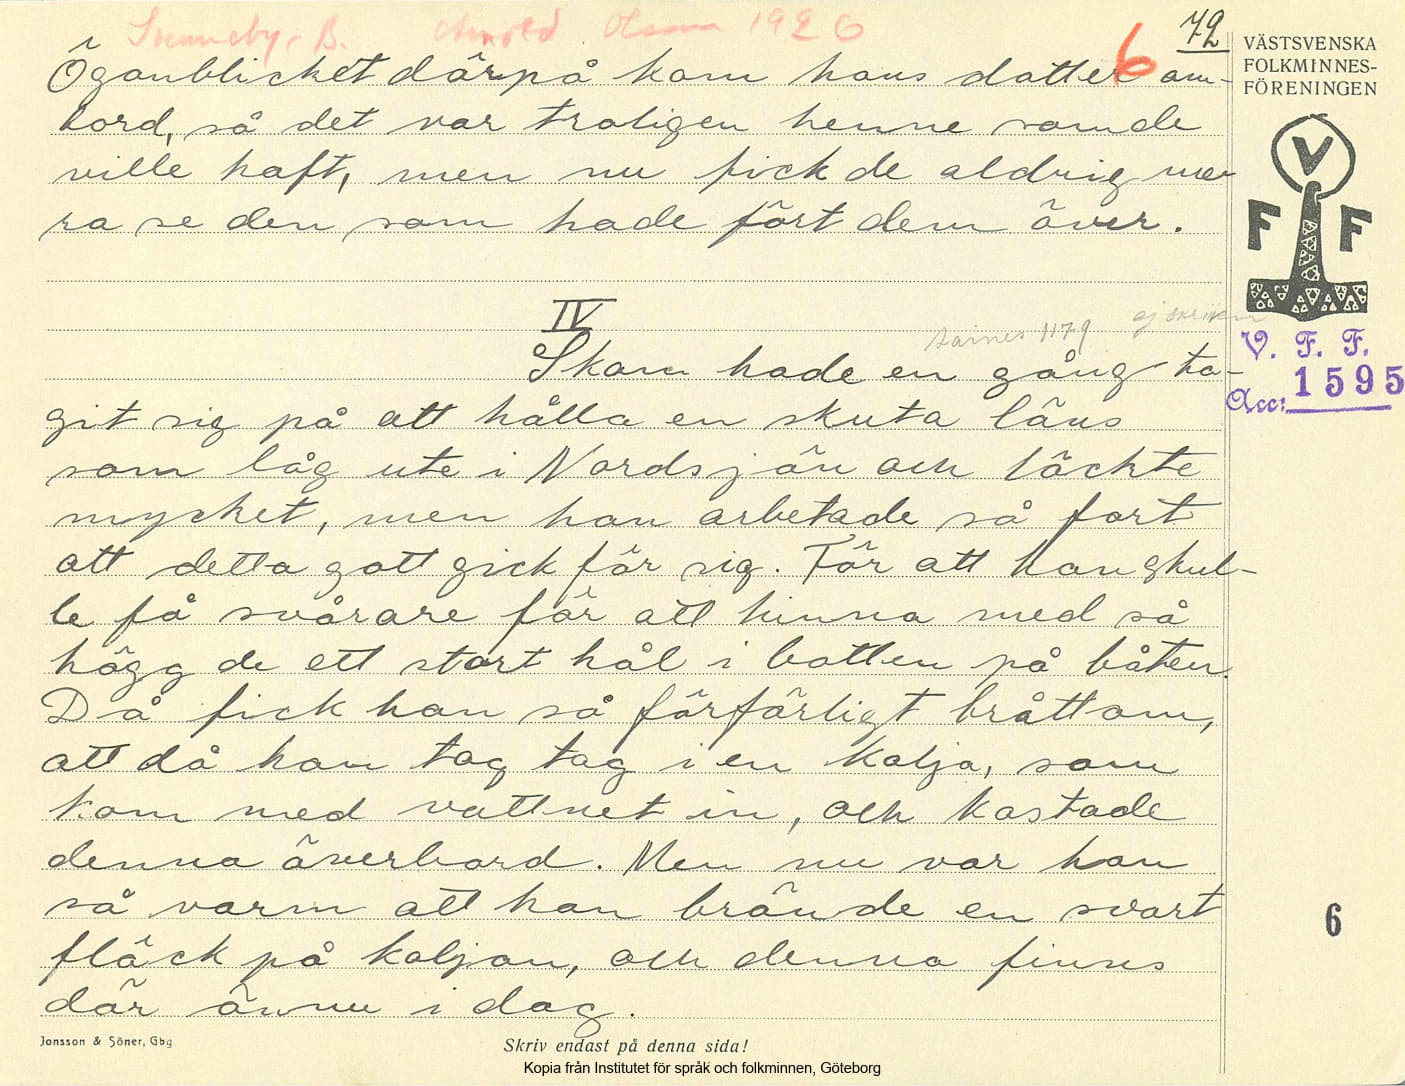 Svenneby, B. Arnold Olsson 1926
6
72
VÄSTSVENSKA
FOLKMINNES-
FÖRENINGEN
V
F F
Öganblicket därpå kom hans datter om-
bord, så det var troligen henne som de
ville haft, men nu fick de aldrig me-
ra se den som hade fört dem över.
IV
ej skriven
V. F. F.
Acc: 1595
Skam hade en gång ta-
git sig på att hålla en skuta läns
som låg ute i Nordsjön och läckte
mycket, men han arbetade så fort
att detta gott gick för sig. För att han skul-
le få svårare för att hinna med så
högg de ett stort hål i botten på båten.
Då fick han så förfärligt bråttom,
att då han tog tag i en kolja, som
kom med vattnet in, och kastade
denna överbord. Men nu var han
så varm att han brände en svart
fläck på koljan, och denna finns
där ännu i dag.
6
Jonsson & Söner, Gbg
Skriv endast på denna sida!
Kopia från Institutet för språk och folkminnen, Göteborg